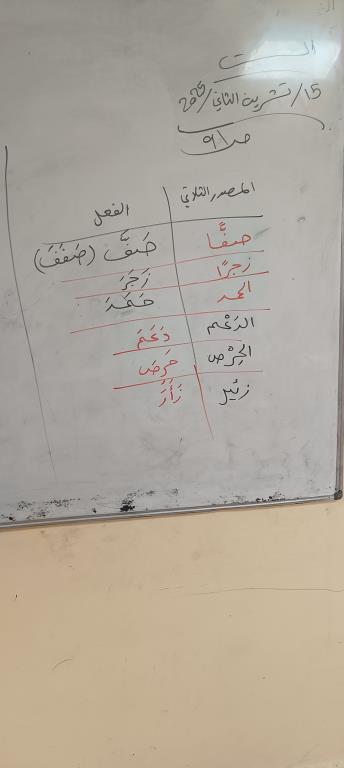 السبت
15/ تشرين الثاني/ 2025
ص91
المصدر الثلاثي الفعل
صفًّا صَفَّ (صَفَفَ)
زجرًا زَجَرَ
الحمد حَمَدَ
الدَعْم دَعَمَ
الحِرْص حَرِصَ
زئير زَأَرَ